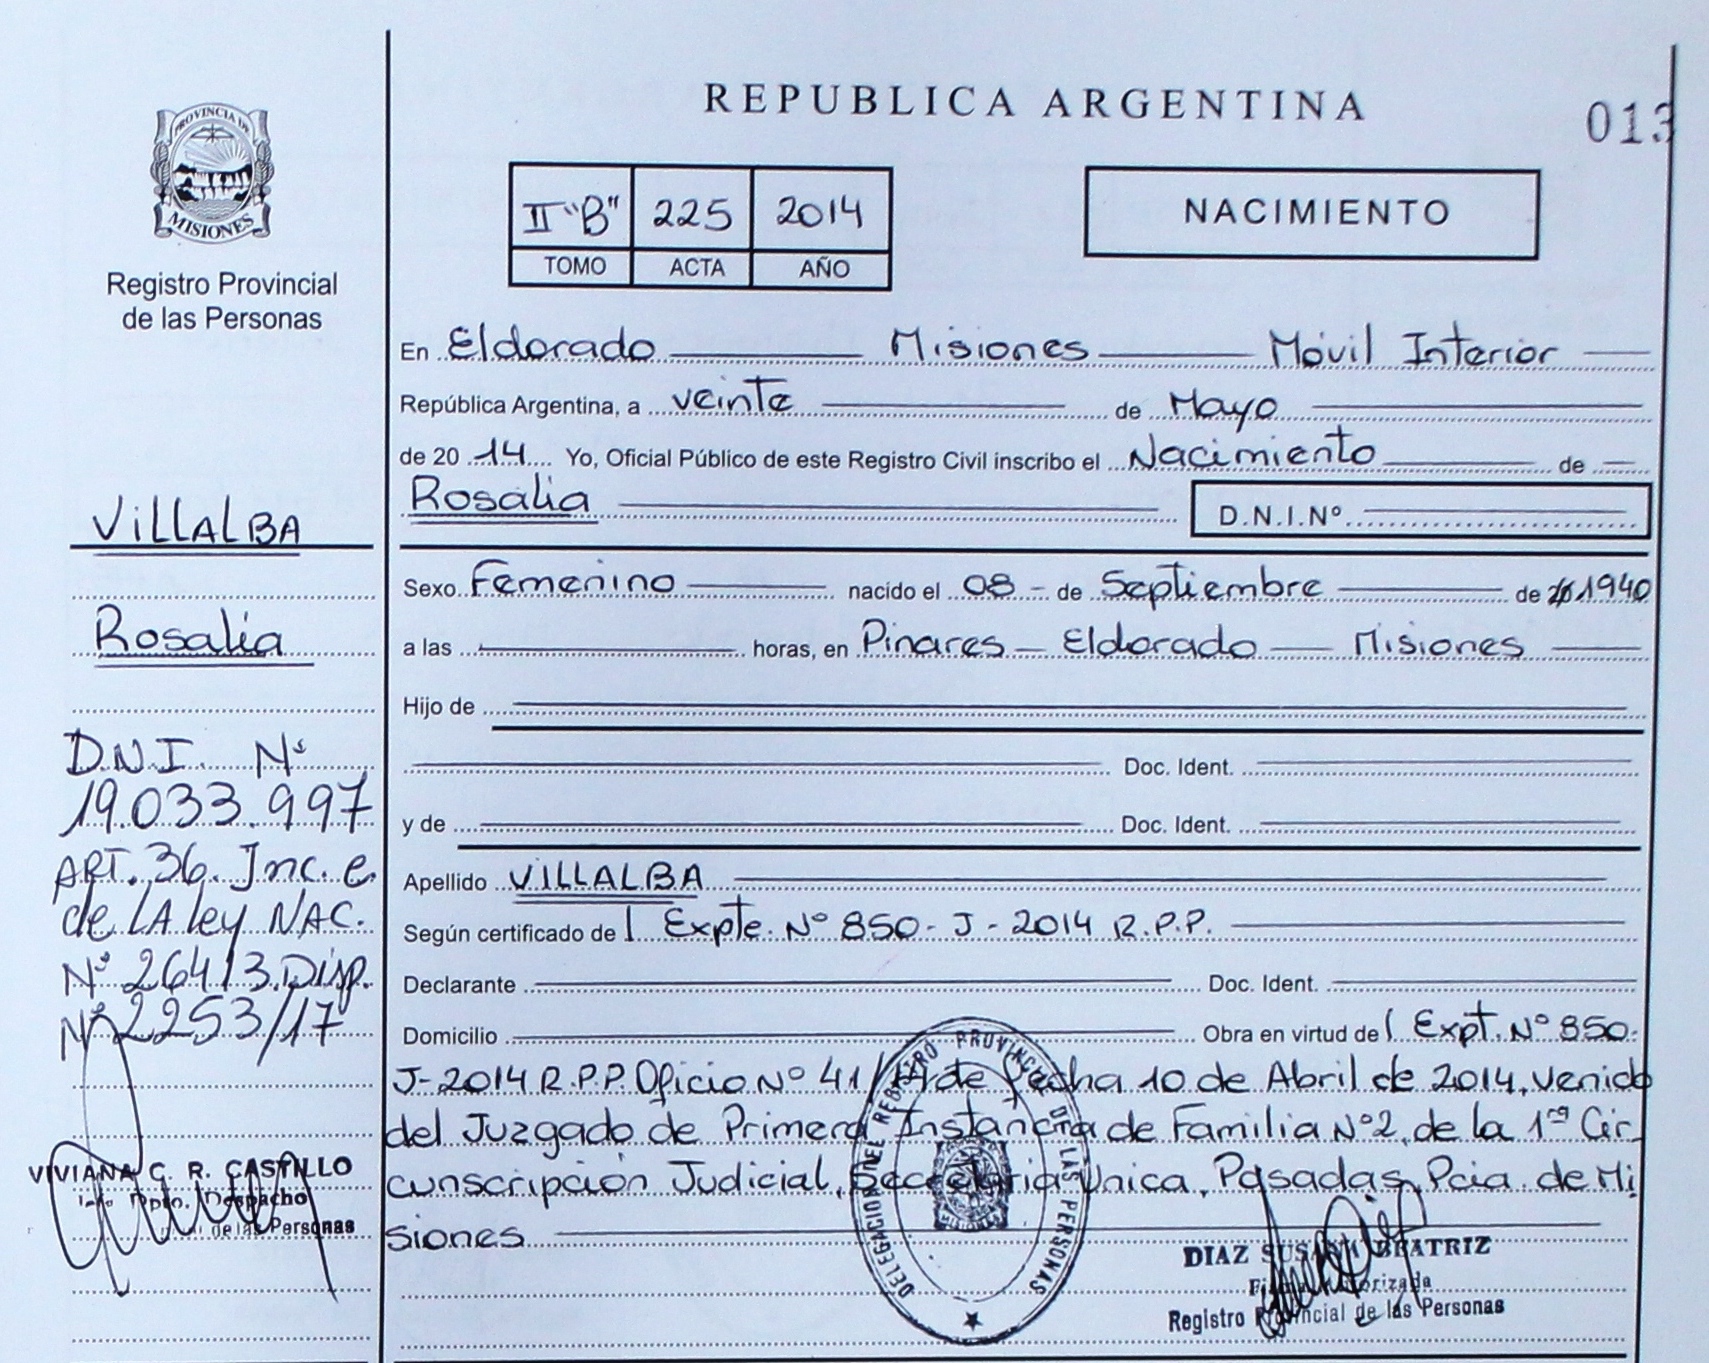 REPUBLICA ARGENTINA
013
PROVINCIA DE
MISIONES
Registro Provincial
de las Personas
II "B" 225 2014
TOMO ACTA AÑO
NACIMIENTO
En Eldorado Misiones Móvil Interior
República Argentina, a veinte de Mayo
de 20 14 Yo, Oficial Público de este Registro Civil inscribo el Nacimiento de
Rosalia D.N.I.Nº
Sexo Femenino nacido el 08 - de Septiembre de 1940
a las horas, en Pinares - Eldorado - Misiones
Hijo de
Doc. Ident.
y de Doc. Ident.
Apellido VILLALBA
Según certificado de Expte. Nº 850 - J - 2014 R.P.P.
Declarante Doc. Ident.
Domicilio Obra en virtud de Expt. Nº 850-
J-2014 R.P.P. Oficio Nº 41/14 de fecha 10 de Abril de 2014, venido
del Juzgado de Primera Instancia de Familia Nº2, de la 1ra Cir-
cunscripción Judicial, Secretaria Unica, Posadas, Pcia. de Mi
siones
VILLALBA
Rosalia
D.N.I. Nº
19.033.997
ART. 36. Inc. e.
de LA ley NAC.
Nº 26413. Disp.
Nº 2253/17
VIVIANA C. R. CASTILLO
Dpto. Despacho
de las Personas
DELEGACION DEL REGISTRO PROVINCIAL DE LAS PERSONAS
DIAZ SUSANA BEATRIZ
Firma Autorizada
Registro Provincial de las Personas